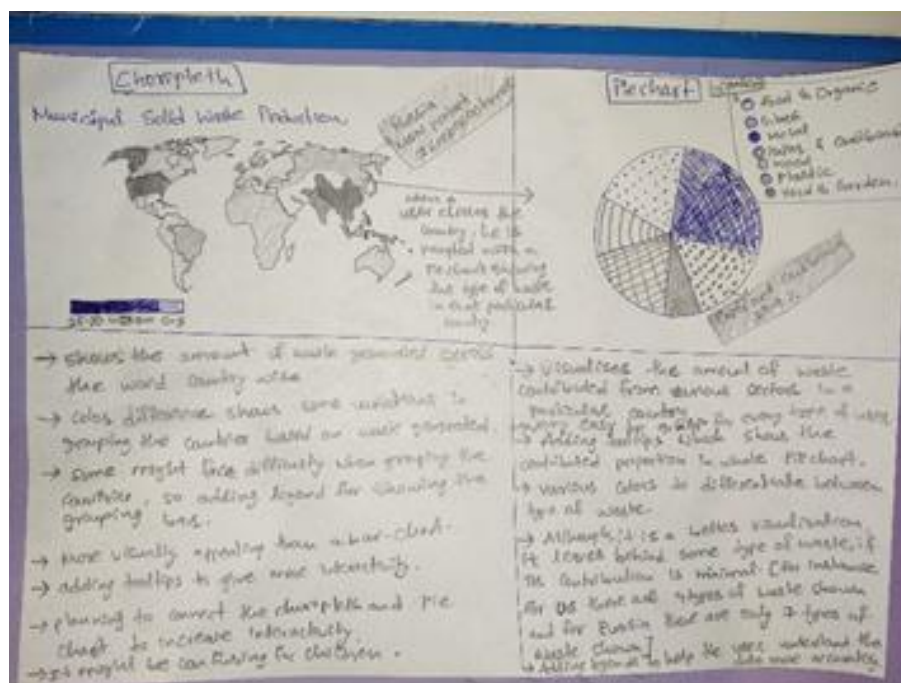 Choropleth
Municipal Solid Waste Production
Russia
Waste
when a
user clicks the
country, he is
prompted with a
Piechart showing
the type of waste
in that particular
country
→ Shows the amount of waste generated across
the word Country wise
→ Color difference shows some variations in
grouping the countries based on waste generated.
→ Some might face difficulty when grouping the
countries, so adding legend for showing the
grouping
→ More visually appealing than a bar-chart.
→ adding tooltips to give more interactivity.
→ planning to connect the choropleth and Pie
chart to increase interactivity.
→ It might be confusing for children.
Piechart
Food & Organic
Glass
Metal
Paper & Cardboard
Wood
Plastic
Yard & Garden
→ Visualises the amount of waste
contributed from various sectors in a
particular country
very easy to for every type of waste
→ Adding tooltips which show the
contributed proportion in whole Piechart.
→ various colors to differentiate between
type of waste.
→ Although, it is a better visualization,
it leaves behind some type of waste, if
its contribution is minimal [for instance
for US there are types of waste shown
and for Russia there are only 7 types of
waste shown]
→ Adding legends to help the user understand the
data more accurately